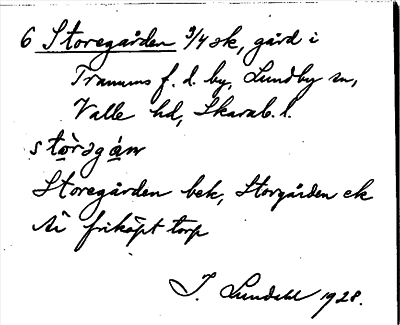 6 Storegården 3/4 sk, gård i
Tranums f. d. by, Lundby sn,
Valle hd, Skarab. l.
stòrəgán
Storegården bek, Storgården ek
Är friköpt torp
J. Lundahl 1928.